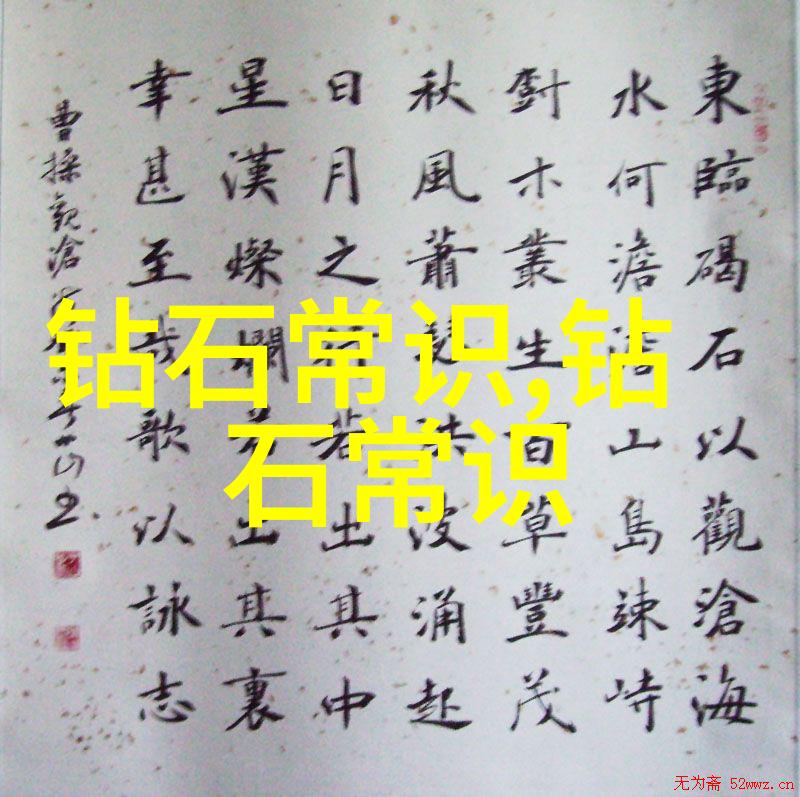 東臨碣石以觀滄海
水何澹澹山島竦峙
樹木叢生百草豐茂
秋風蕭瑟洪波涌起
日月之行若出其中
星漢燦爛若出其裏
幸甚至哉歌以詠志
曹操觀滄海
钻石常识,钻
石常识
无为斋 52wwz.cn